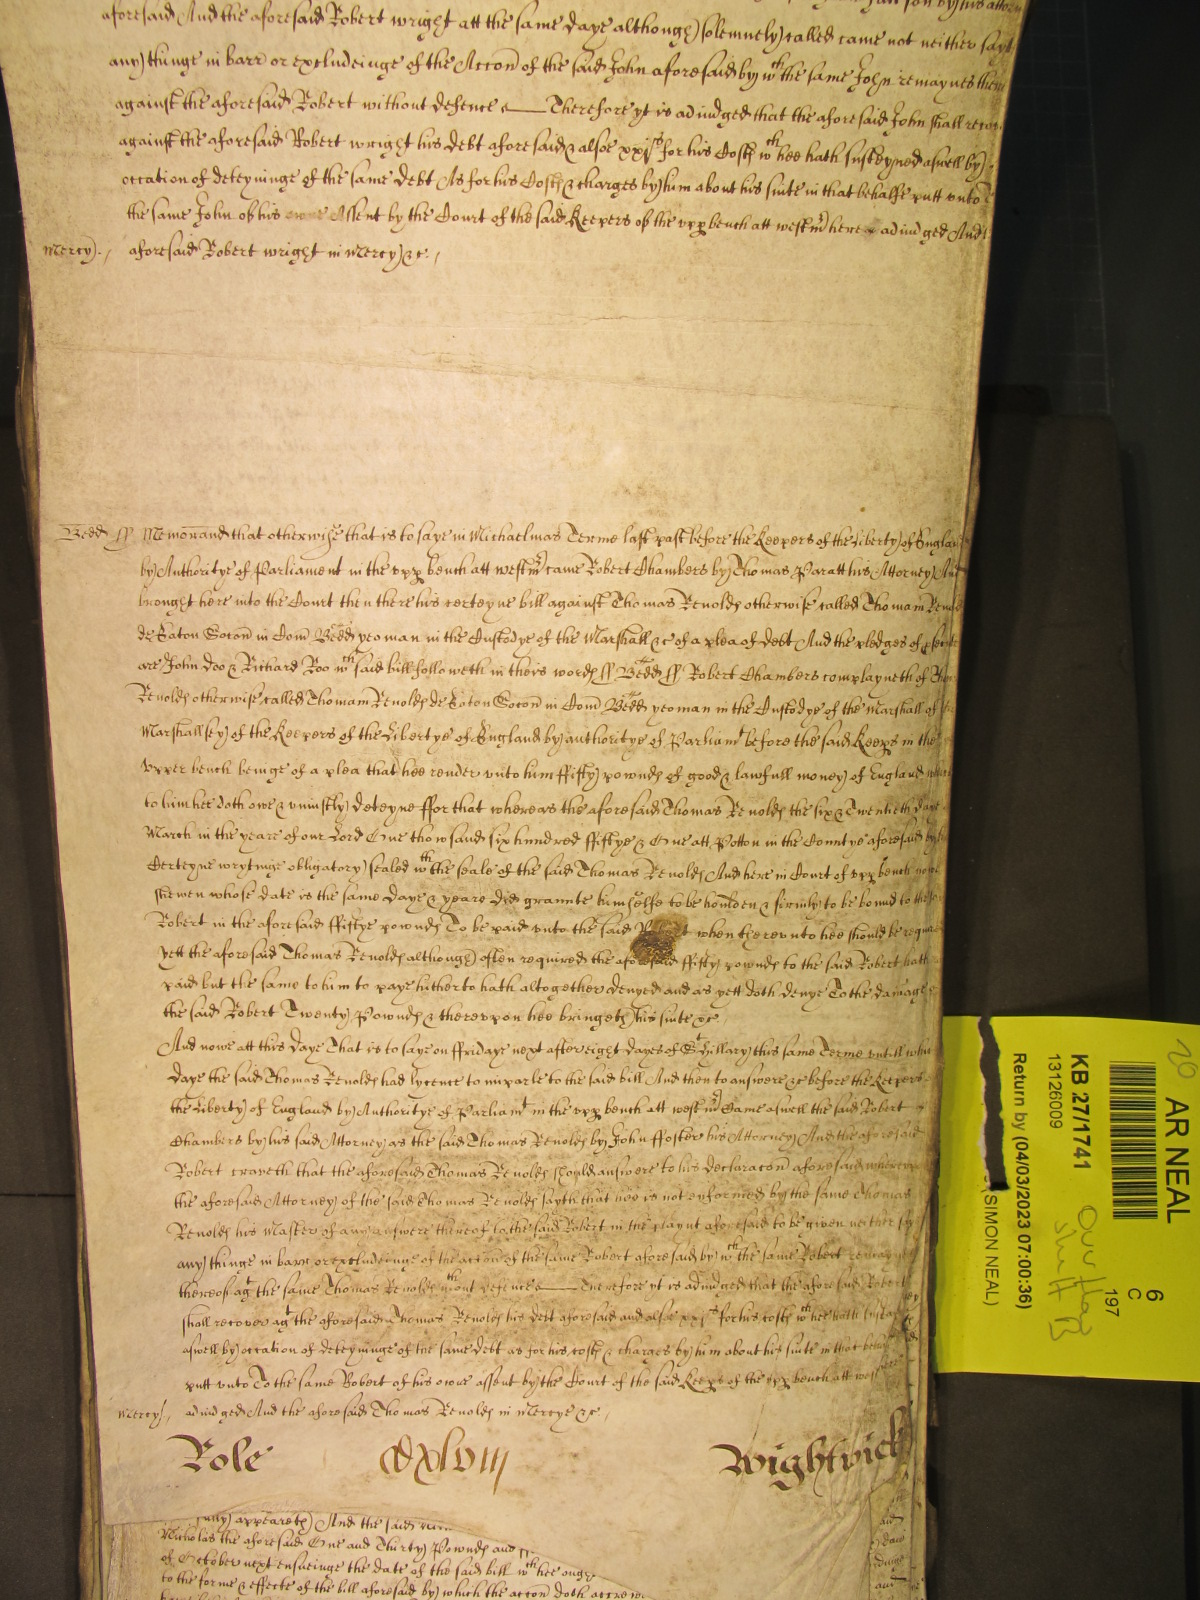 aforesaid And the aforesaid Robert wright att the same daye although solemnely called came not neither sayt
any thinge in barr or excludeinge of the Accon of the said John aforesaid by wth the same John remaynes then
against the aforesaid Robert without defence Therefore yt is adiudged that the aforesaid John shall recov
against the aforesaid Robert wright his debt aforesaid & alsoe xxjs for his Costs wth hee hath susteyned aswell by
occation of deteyninge of the same debt As for his Costs & charges by him about his suite in that behalfe putt unto
the same John of his owne Assent by the Court of the said Keepers of the upp bench att westmr here adiudged And
Mercy. aforesaid Robert wright in Mercy &c.
Bedd ss Memorand that otherwise that is to saye in Michaelmas Terme last past before the Keepers of the Liberty of Englan
by Authoritye of Parliament in the upp bench att westmr came Robert Chambers by Thomas Paratt his Attorney And
brought here into the Court then there his certeyne bill against Thomas Renolds otherwise called Thomam Reno
de Eaton Socon in Com Bedd yeoman in the Custodye of the Marshall &c of a plea of debt And the pledges of
are John Doo & Richard Roo wth said bill followeth in theis words ss Bedd ss Robert Chambers complayneth of Tho
Renolds otherwise called Thomam Renolds de Eaton Socon in Com Bedd yeoman in the Custodye of the Marshall of
Marshallsey of the Keepers of the Libertye of England by authoritye of Parliamt before the said Keeps in the
upper bench beinge of a plea that hee render unto him ffifty pownds of good & lawfull money of England
to him hee doth owe & uniustly deteyne ffor that whereas the aforesaid Thomas Renolds the six & Twentieth daye
March in the yeare of our Lord One thowsand six hundred ffiftye & One att Potton in the Countye aforesaid by
Certeyne wrytinge obligatory sealed wth the seale of the said Thomas Renolds And here in Court of upp bench
shewen whose date is the same daye & yeare did graunte himselfe to be houlden & firmly to be bound to the
Robert in the aforesaid ffiftye pownds To be paid unto the said when thereunto hee should be requi
yett the aforesaid Thomas Renolds although often required the aforesaid ffifty pownds to the said Robert hath
paid but the same to him to paye hitherto hath altogether denyed and as yett doth denye To the damage
the said Robert Twenty Pownds & thereupon hee bringeth his suite &c
And nowe att this daye That is to saye on ffridaye next after eight dayes of St Hillary this same Terme untill
daye the said Thomas Renolds had lycence to imparle to the said bill And then to answere &c before the Keepers
the Liberty of England by Authoritye of Parliamt in the upp bench att westmr Came aswell the said Robert
Chambers by his said Attorney as the said Thomas Renolds by John ffoster his Attorney And the aforesaid
Robert craveth that the aforesaid Thomas Renolds should answere to his declaracon aforesaid
the aforesaid Attorney of the said Thomas Renolds sayth that hee is not enformed by the same Thomas
Renolds his Master of any answere thereof to the said Robert in the playnt aforesaid to be given neither
any thinge in barr or excludeinge of the accon of the same Robert aforesaid by wth the same Robert
thereof agt the same Thomas Renolds wthout defence Therefore yt is adiudged that the aforesaid Robert
shall recover agt the aforesaid Thomas Renolds his debt aforesaid and alsoe xxjs for his costs wth hee hath
aswell by occation of deteyninge of the same debt as for his costs & charges by him about his suite in that
putt unto To the same Robert of his owne assent by the Court of the said Keeps of the upp bench att
Mercy. adiudged And the aforesaid Thomas Renolds in Mercye &c.
Role Cxlviij Wightwick
appeareth And the said
Nicholas the aforesaid One and Thirty Pownds and
of October next ensueinge the date of the said bill wth hee
to the forme & effecte of the bill aforesaid by which the accon doth accrew
AR NEAL
6
C
197
KB 27/1741
13126009
Return by (04/03/2023 07:00:36)
(SIMON NEAL)